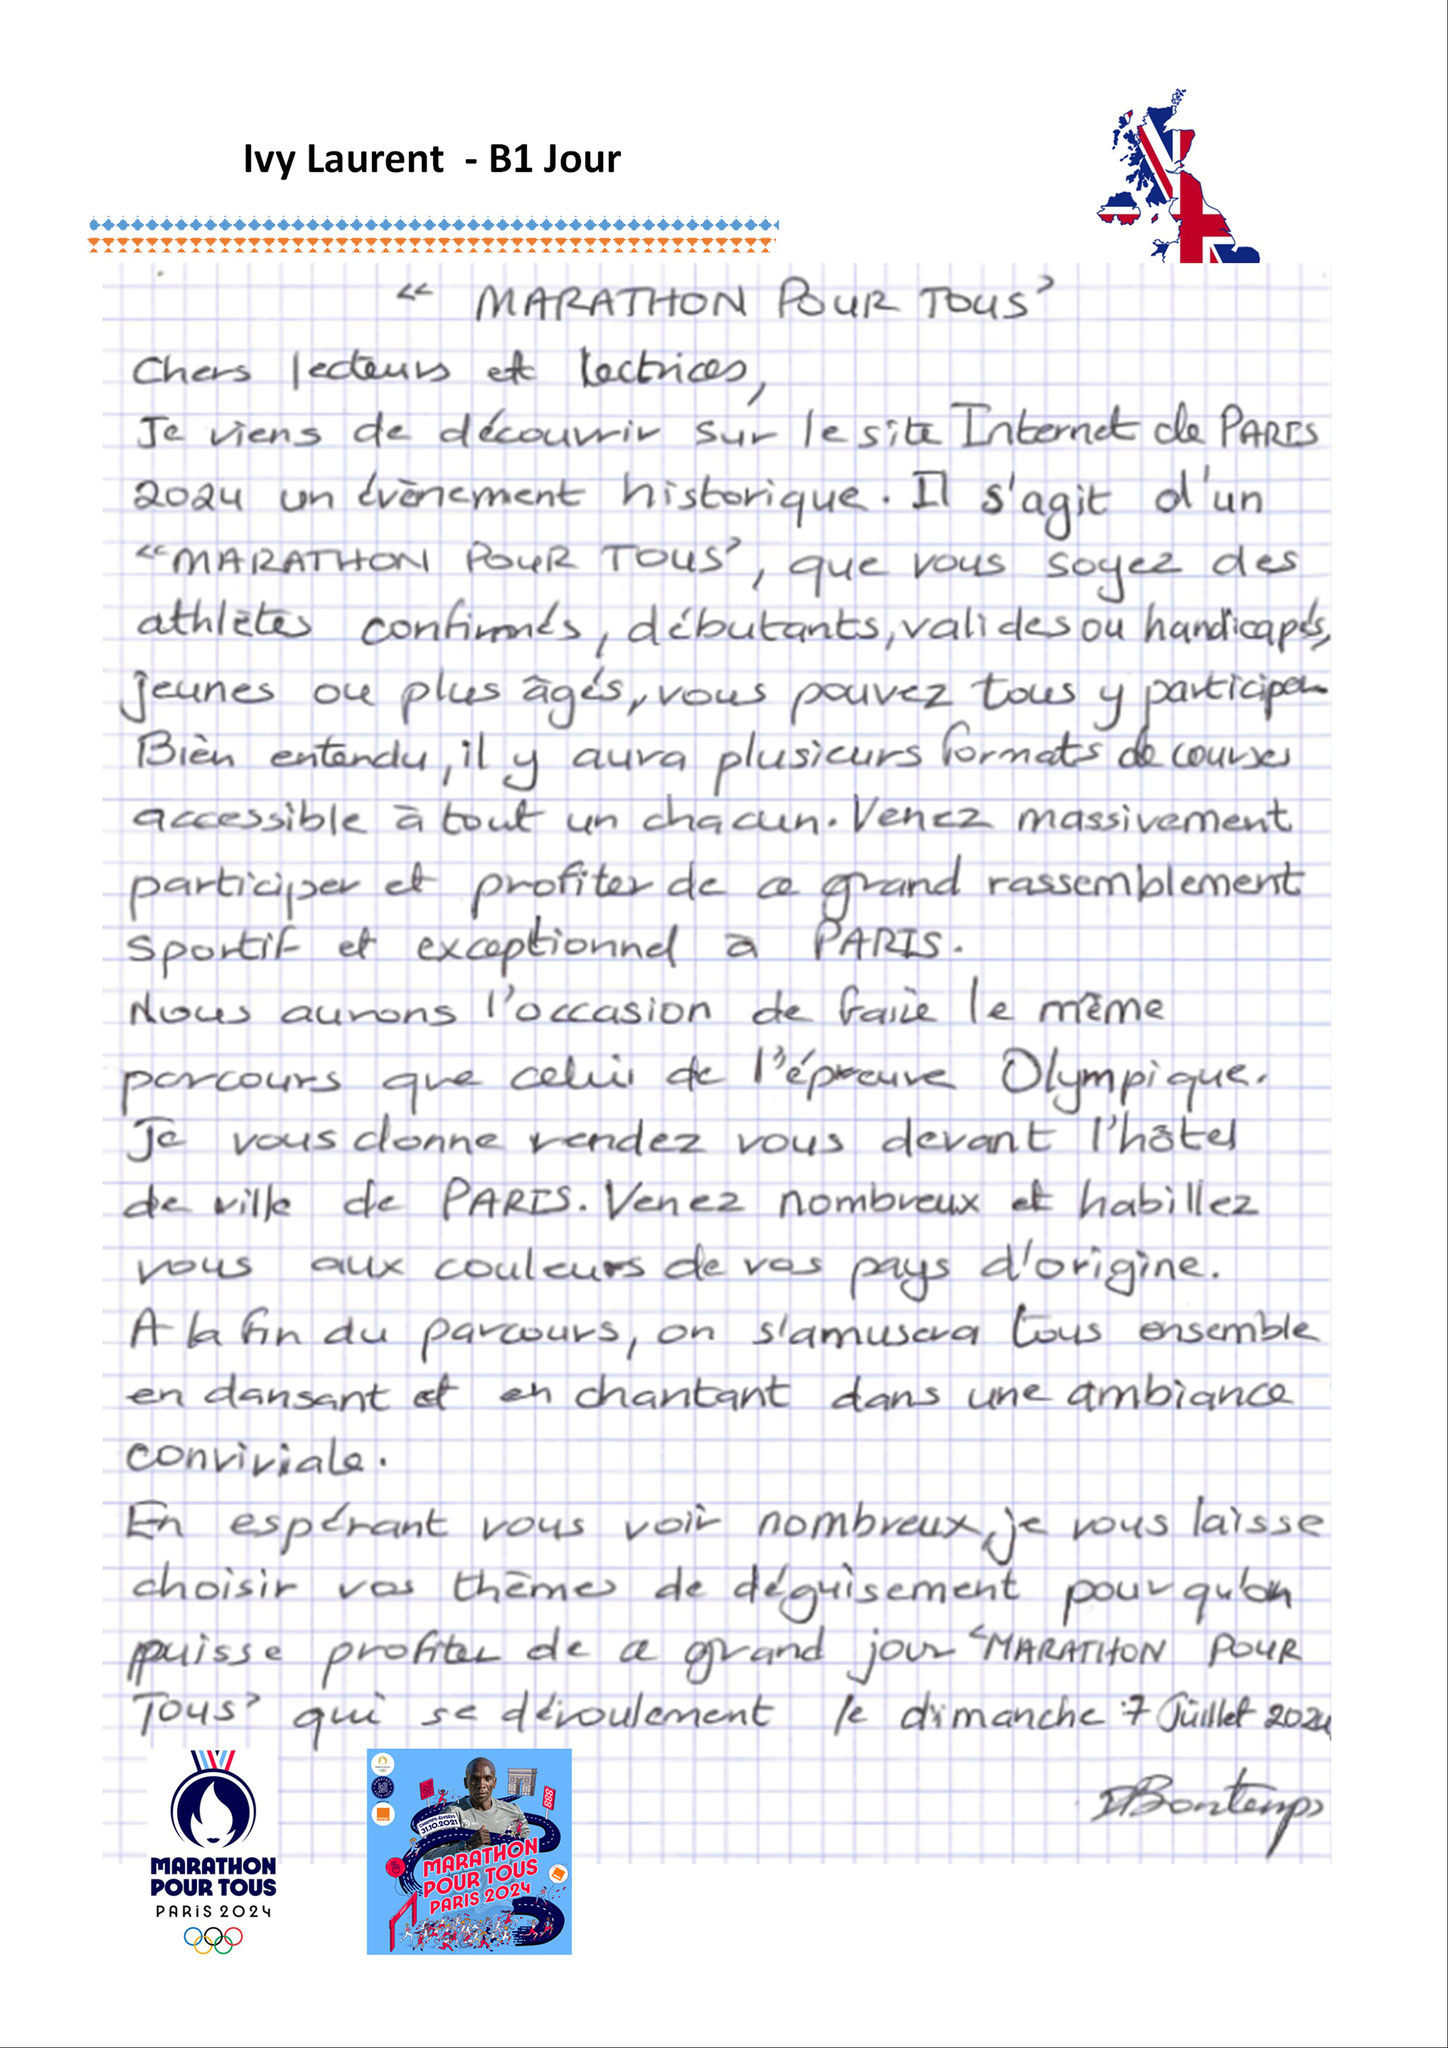 Ivy Laurent - B1 Jour
" MARATHON POUR TOUS"
Chers lecteurs et lectrices,
Je viens de découvrir sur le site Internet de PARIS
2024 un évènement historique. Il s'agit d'un
"MARATHON POUR TOUS", que vous soyez des
athlètes confirmés, débutants, valides ou handicapés,
jeunes ou plus âgés, vous pouvez tous y participer
Bien entendu, il y aura plusieurs formats de courses
accessible à tout un chacun. Venez massivement
participer et profiter de ce grand rassemblement
sportif et exceptionnel à PARIS.
Nous aurons l'occasion de faire le même
parcours que celui de l'épreuve Olympique.
Je vous donne rendez vous devant l'hôtel
de ville de PARIS. Venez nombreux et habillez
vous aux couleurs de vos pays d'origine.
A la fin du parcours, on s'amusera tous ensemble
en dansant et en chantant dans une ambiance
conviviale.
En espérant vous voir nombreux, je vous laisse
choisir vos thèmes de déguisement pour qu'on
puisse profiter de ce grand jour "MARATHON POUR
TOUS" qui se déroulement le dimanche 7 Juillet 2024
Bontemps
MARATHON
POUR TOUS
PARIS 2024
CHAMPS-ÉLYSÉES
31.10.2021
MARATHON
POUR TOUS
PARIS 2024